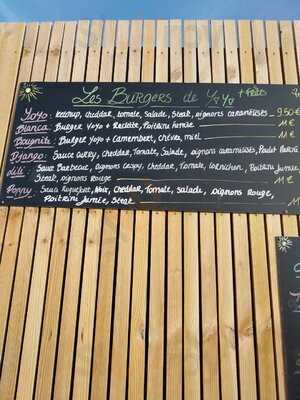 Les Burgers de YoYo + Frites
YoYo : Ketchup, cheddar, tomate, Salade, Steak, oignons caramélisés 9.50€
Bianca : Burger YoYo + Raclette, Poitrine fumée 11€
Burger YoYo + Camembert, chèvre, miel 11€
Django : Sauce curry, cheddar, Tomate, Salade, oignons caramélisés, Poulet
Lili : Sauce Barbecue, oignons crispy, cheddar, Tomate, cornichon, Poitrine fumée,
Steak, oignons rouge 11€
Poppy : Sauce Roquefort, Noix, cheddar, Tomate, salade, oignons Rouge,
Poitrine fumée, Steak 11€